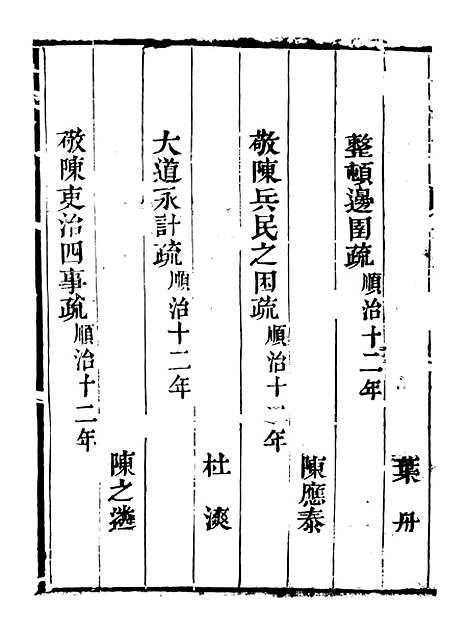 葉舟
整頓邊圉疏順治十二年
陳應泰
敬陳兵民之困疏順治十二年
杜漺
大道永計疏順治十二年
陳之遴
敬陳吏治四事疏順治十二年